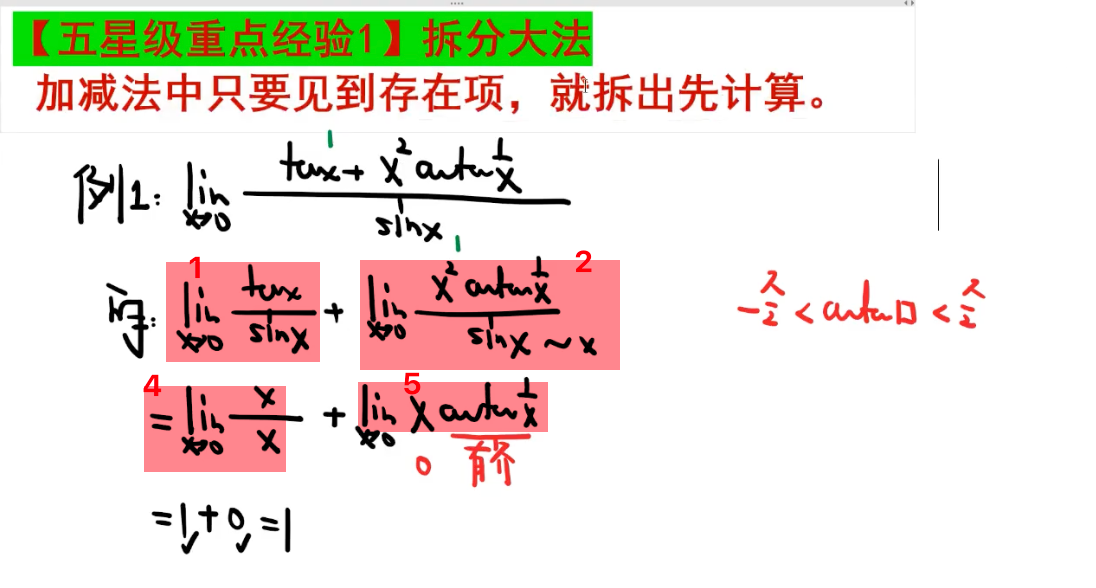 【五星级重点经验1】拆分大法
加减法中只要见到存在项，就拆出先计算。
1
例1: lim x→0 (tanx + x² arctan 1/x) / sinx
1
1 2
原式: lim x→0 tanx/sinx + lim x→0 (x² arctan 1/x) / sinx ~ x
-π/2 < arctan□ < π/2
4 5
= lim x→0 x/x + lim x→0 x arctan 1/x
0 有界
= 1 + 0 = 1